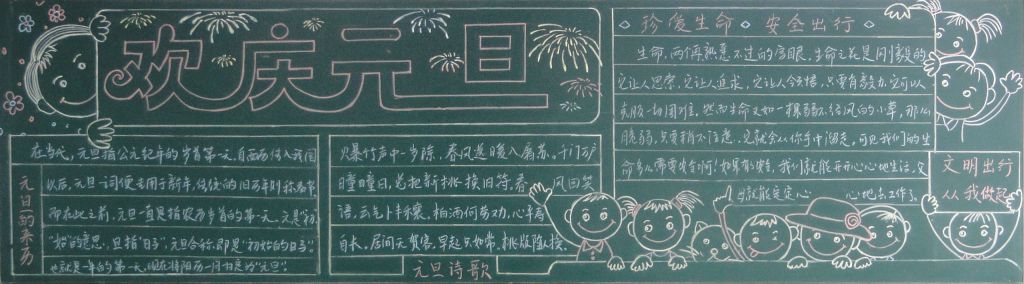 欢庆元旦
元旦的来历
在当代，元旦指公元纪年的岁首第一天，自西历传入我国
以后，元旦一词便专用于新年，传统的旧历年则称春节
而在此之前，元旦一直是指农历岁首的第一天。元是"初"
"始"的意思，旦指"日子"，元旦合称即是"初始的日子"。
也就是一年的第一天，现在将阳历一月一日定为"元旦"。
爆竹声中一岁除，春风送暖入屠苏。千门万户
曈曈日，总把新桃换旧符。春 风回笑
语，云气卜丰穰。柏酒何劳劝，心平寿
自长。居间无贺客，早起只如常，桃版随人换。
元旦诗歌
珍爱生命 安全出行
生命，两个再熟悉不过的字眼，生命之花是
它让人思索，它让人追求，它让人 ，只要有毅力，它可以
克服一切困难，然而生命又如一棵弱不经风的小草，那么
脆弱，只要稍不注意，它就会从你手中溜走，可见我们的生
命多么需要 啊！如果 ，我们就能开开心心地生活，父
母就能定定心 心地去工作了。
文明出行
从我做起